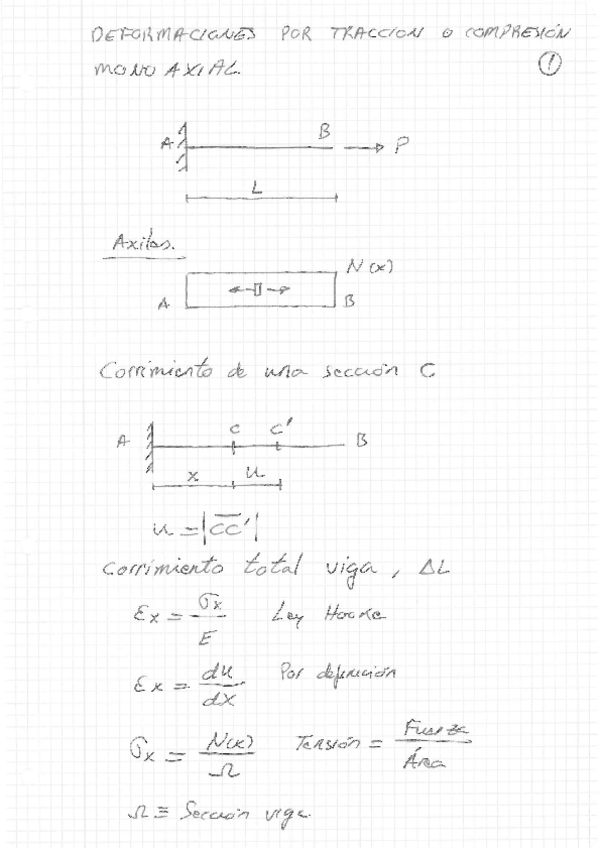 DEFORMACIONES POR TRACCION O COMPRESIÓN
MONOAXIAL.
1
A B P
L
Axiles.
N(x)
A B
Corrimiento de una sección C
A C C' B
x u
u = |CC'|
Corrimiento total viga, ΔL
εx = σx / E Ley Hooke
εx = du / dx Por definición
σx = N(x) / Ω Tensión = Fuerza / Área
Ω ≡ Sección viga.